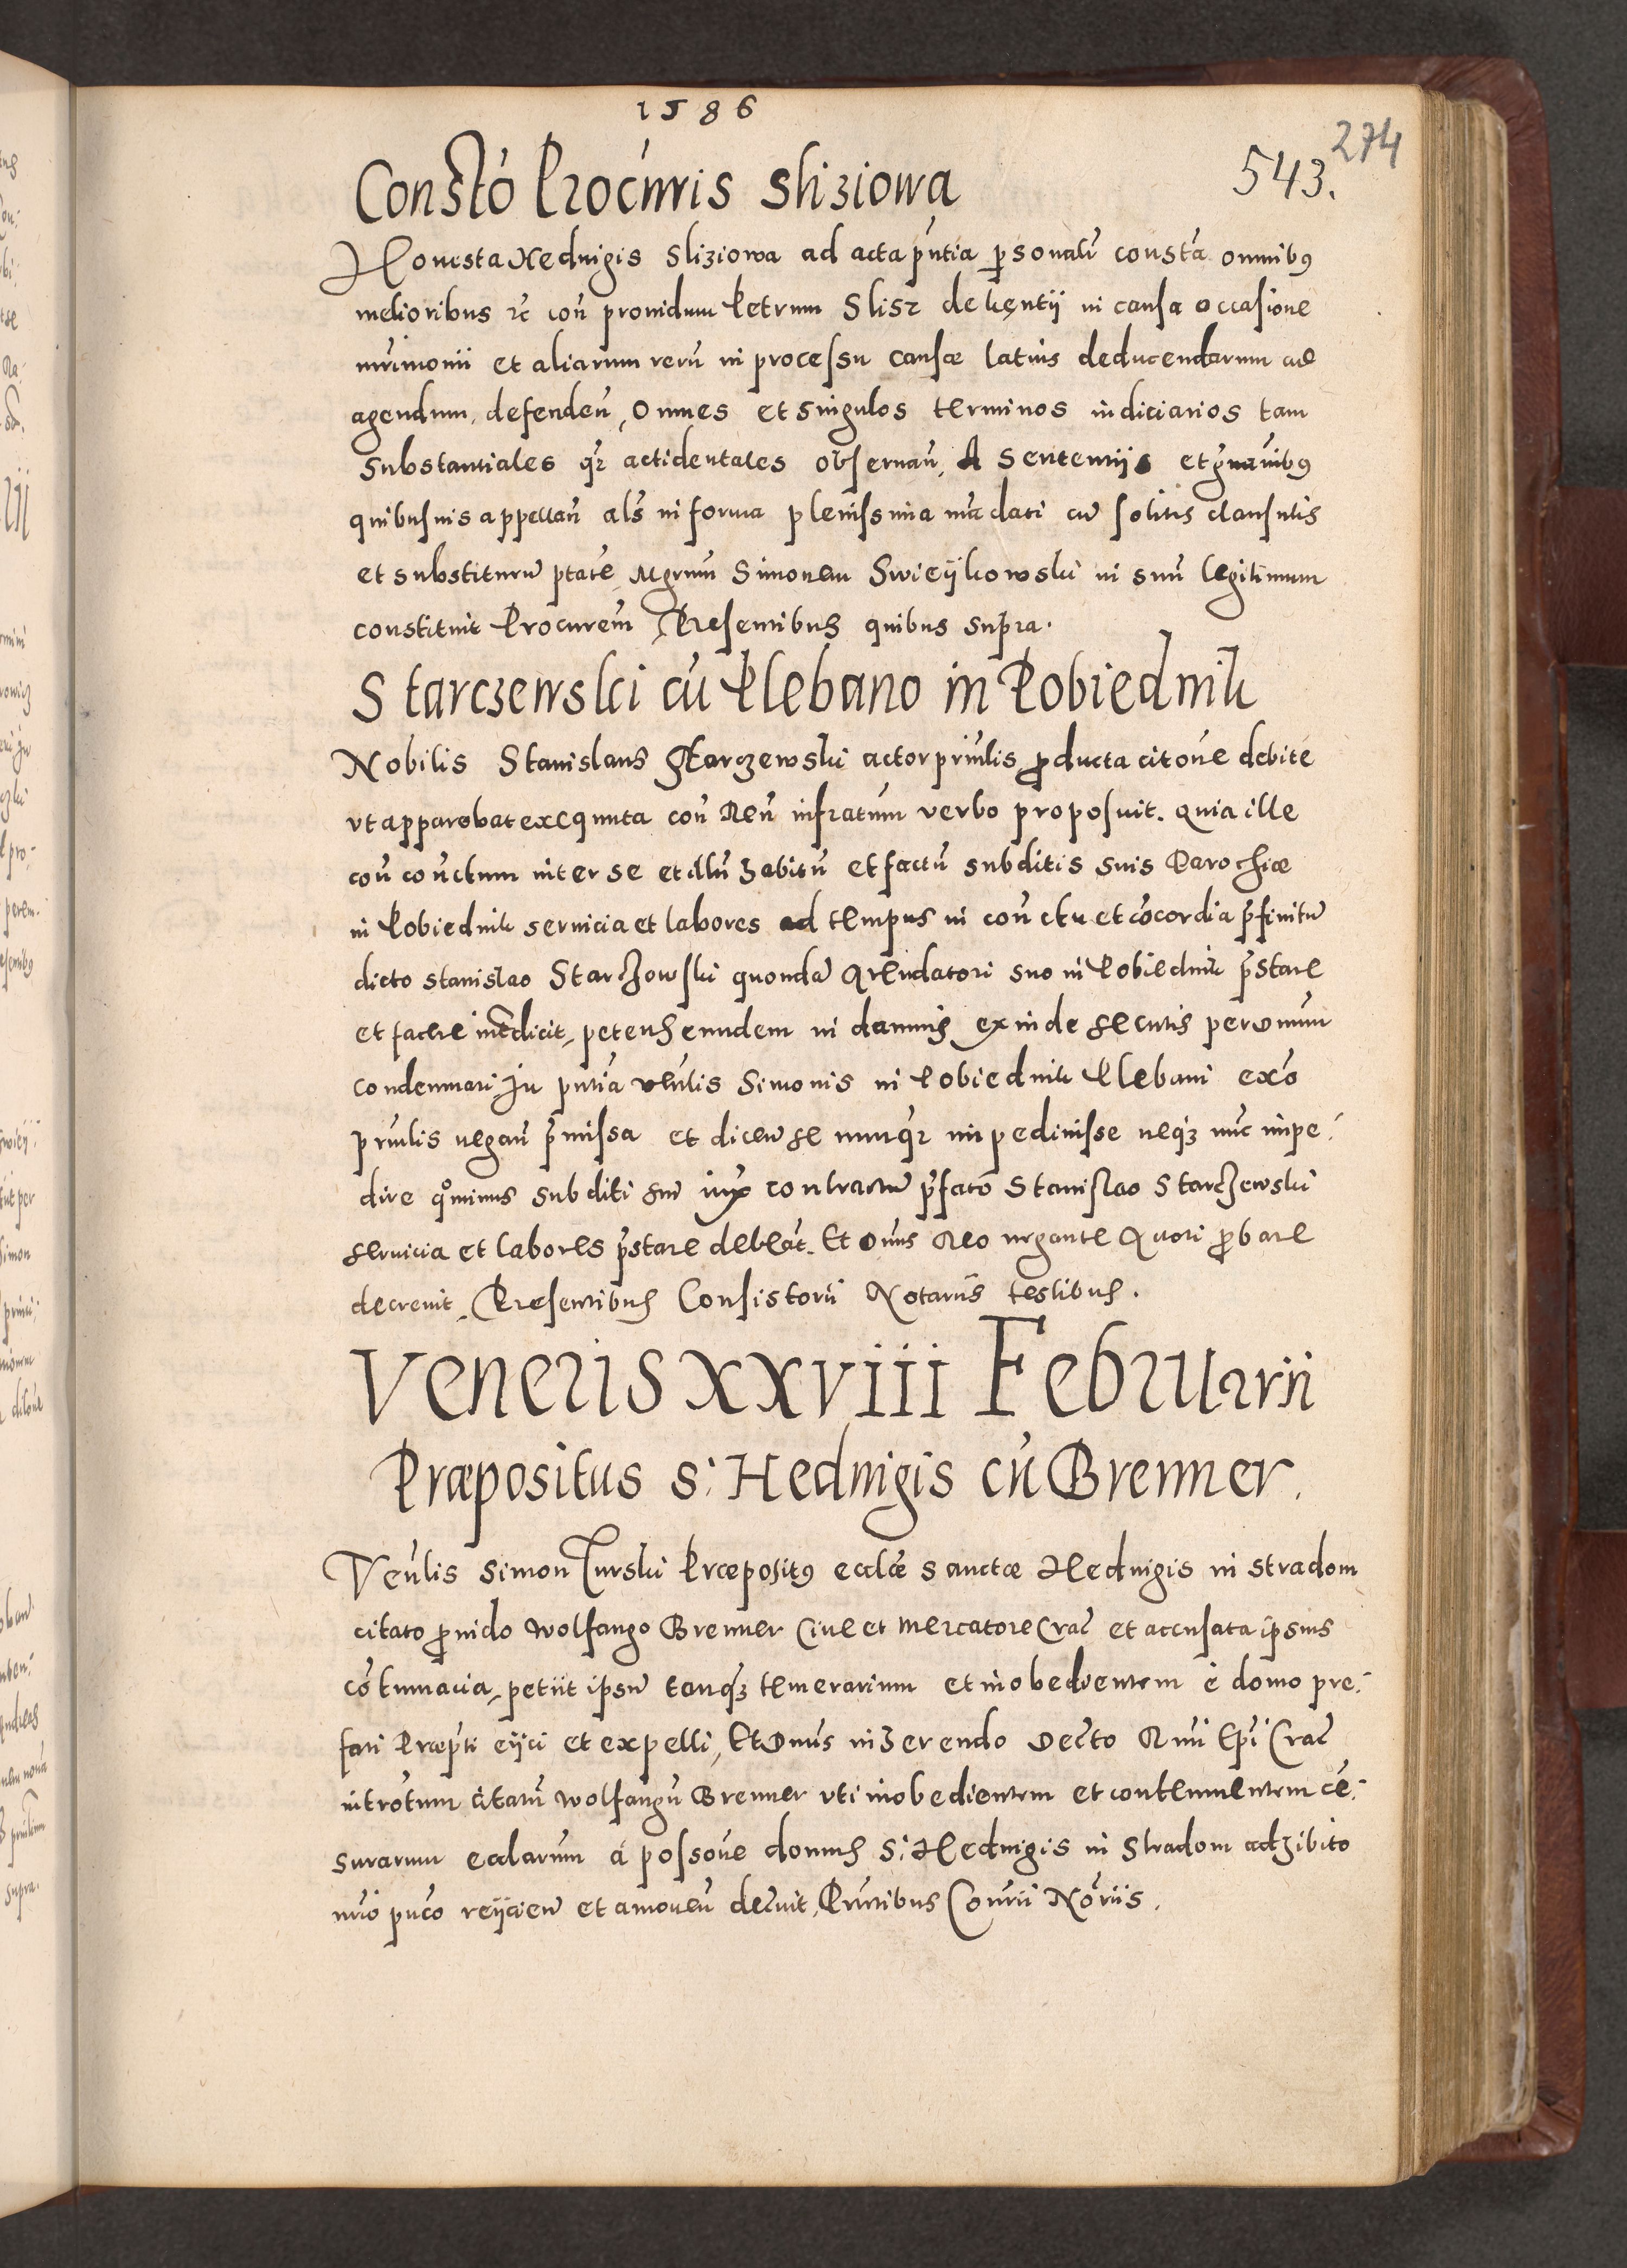 1586
274
543.
Constó Procúris Sliziowa
Honesta Hedvigis Sliziowa ad acta pñtia personalr̃ constã omnibꝰ
melioribus rc̃ coñ providum Petrum Slisz de Kęntÿ in causa occasione
mr̃imonii et aliarum rerũ in processu causæ latius deducendarum ad
agendum, defendeñ, omnes et singulos terminos iudiciarios tam
substantiales qz̃ accidentales observañ, A sententijs et gravaĩbꝰ
quibusuis appellañ als̃ in forma plenissima mãdati cũ solitis clausulis
et substituen̄ ptate, Mgrum̃ Simonem Swieÿkowski in suũ legitimum
constituit Procurem̃, Præsentibus quibus supra.
Starczewski cũ Plebano in Pobiednik
Nobilis Stanislaus Starczewski actor prinl̃is producta citõne debite
vt apparebat exequuta coñ Reũ infratum̃ verbo proposuit. Quia ille
coñ coñctum inter se et illũ habitũ et factũ subditis suis Parochiæ
in Pobiednik seruicia et labores ad tempus in coñctu et cõcordia p̃finitũ
dicto Stanislao Starczowski quondã Arendatori suo in Pobiednik p̃stare
et facere intẽdicit, petens eundem in damnis exinde secutis per Dnum
condemnari. In pñtia vẽnlis Simonis in Pobiednik Plebani ex õ
prinl̃is negañ p̃missa et diceñ se nunqz̃ impedivisse neqꝫ nũc impe-
dire qͦminus subditi sui iux̃ contractũ p̃fatõ Stanislao Starczewski
seruicia et labores p̃stare debeãt. Et Dnũs Reo negante Actori probare
decrevit, Præsentibus Consistorii Notariis testibus.
Veneris XXVIII Februarii
Præpositus S: Hedvigis cũ Brenner.
Vẽnlis Simon Turski Præpositꝰ eccl̃æ Sanctæ Hedvigis in Stradom
citato provido Wolfango Brenner Ciue et Mercatore Crac̃ et accusata ipsius
cõtumacia, petiit ipsũ tanqꝫ temerarium et inobedientem è domo pre-
fati Præpti eijci et expelli, Et Dnũs inhærendo Decto Rmi Ep̃i Crac̃
introtum citatũ Wolfangũ Brenner vti inobedientem et contemnentem cẽ-
surarum eccl̃arum à possõne domus S: Hedvigis in Stradom adhibito
mĩo puco reijcieñ et amoueñ decr̃uit, Prñtibus Conr̃ii Nõriis.